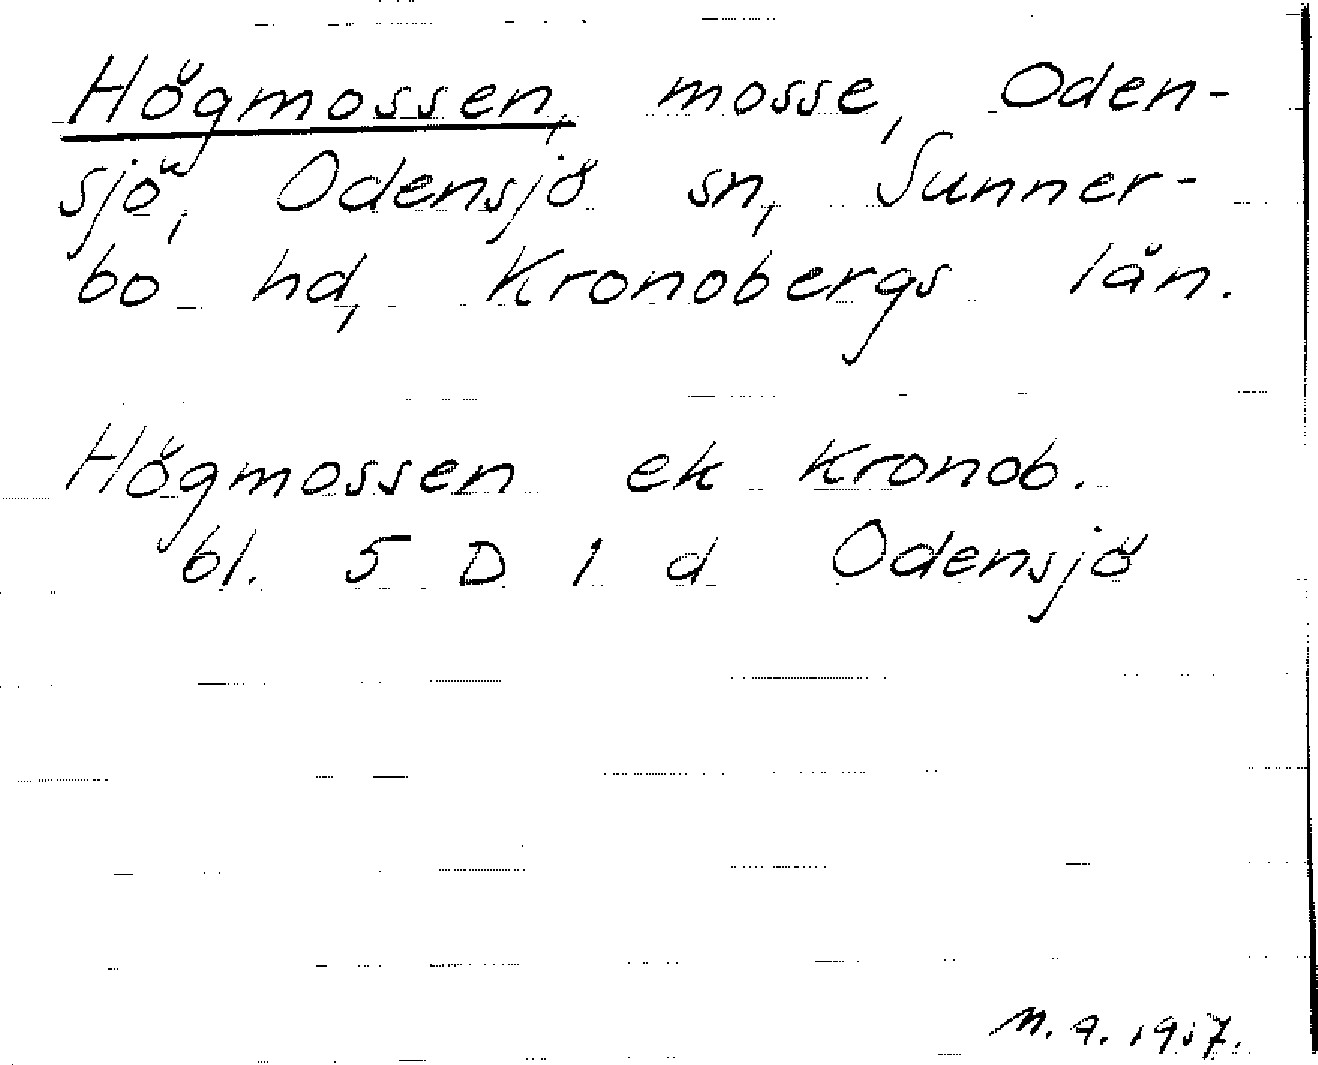 Högmossen, mosse, Oden-
sjö, Odensjö sn, Sunner-
bo hd, Kronobergs län.
Högmossen ek Kronob.
bl. 5 D 1 d Odensjö
M. A. 1957.